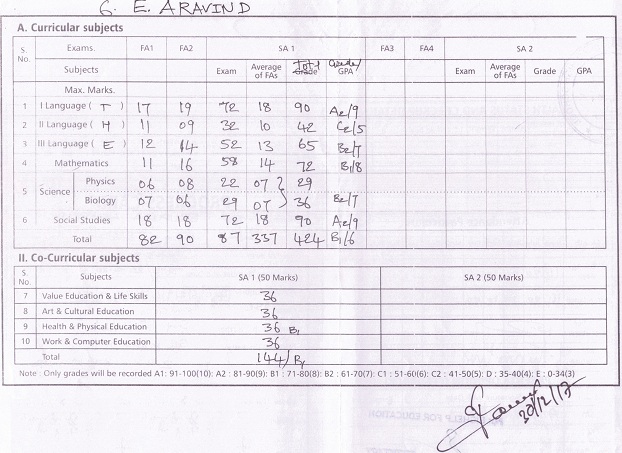 6. E. ARAVIND
A. Curricular subjects
S. No. Exams FA1 FA2 SA 1 FA3 FA4 SA 2
Subjects Exam Average of FAs Total Grade Grade/ GPA Exam Average of FAs Grade GPA
Max. Marks.
1 I Language ( T ) 17 19 72 18 90 A2/9
2 II Language ( H ) 11 09 32 10 42 C2/5
3 III Language ( E ) 12 14 52 13 65 B2/7
4 Mathematics 11 16 58 14 72 B1/8
5 Science Physics 06 08 22 07 29
Biology 07 06 29 07 36 B2/7
6 Social Studies 18 18 72 18 90 A2/9
Total 82 90 87 337 424 B1/6
II. Co-Curricular subjects
S. No. Subjects SA 1 (50 Marks) SA 2 (50 Marks)
7 Value Education & Life Skills 36
8 Art & Cultural Education 36
9 Health & Physical Education 36 B1
10 Work & Computer Education 36
Total 144/ B1
Note : Only grades will be recorded A1: 91-100(10): A2 : 81-90(9): B1 : 71-80(8): B2 : 61-70(7): C1 : 51-60(6): C2 : 41-50(5): D : 35-40(4): E : 0-34(3)
30/12/17